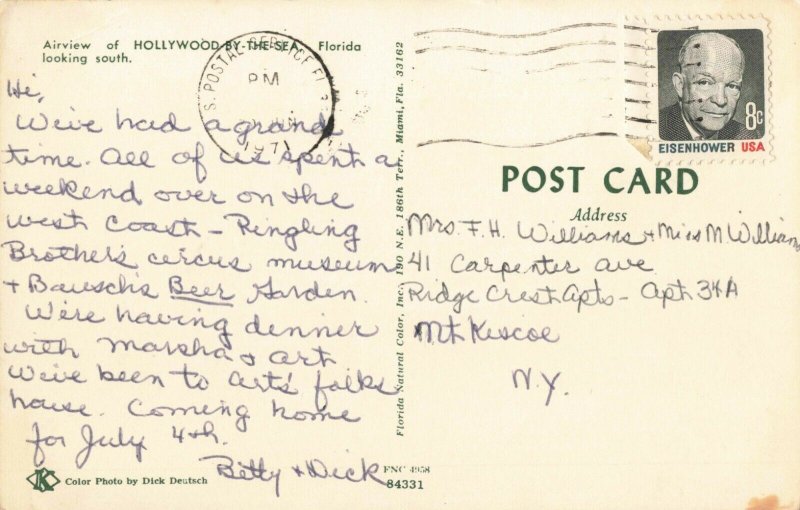 Airview of HOLLYWOOD-BY-THE-SEA, Florida
looking south.
S. POSTAL SERVICE FL
PM
1971
Hi,
We've had a grand
time. All of us spent a
weekend over on the
west coast - Ringling
Brothers circus museum
+ Bausch's Beer Garden.
We're having denner
with Marsha & Art
We've been to Art's folks
house. Coming home
for July 4th.
Betty + Dick
Color Photo by Dick Deutsch
FNC 4958
84331
Florida Natural Color, Inc., 190 N.E. 186th Terr., Miami, Fla. 33162
8c
EISENHOWER USA
POST CARD
Address
Mrs. F.H. Williams + Miss M Williams
41 Carpenter Ave
Ridge Crest Apts - Apt 34A
Mt. Kescoe
N.Y.